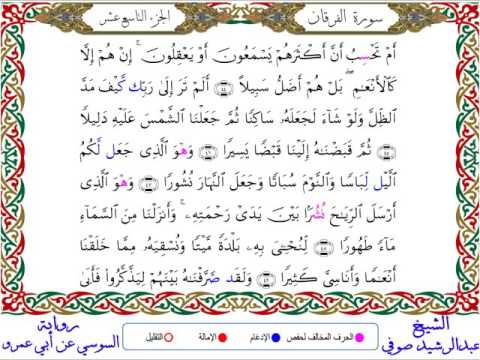 سورة الفرقان
الجزء التاسع عشر
أَمْ تَحْسِبُ أَنَّ أَكْثَرَهُمْ يَسْمَعُونَ أَوْ يَعْقِلُونَ ۚ إِنْ هُمْ إِلَّا
كَالْأَنْعَٰمِ ۖ بَلْ هُمْ أَضَلُّ سَبِيلًا ۝ أَلَمْ تَرَ إِلَىٰ رَبِّك كَّيْفَ مَدَّ
ٱلظِّلَّ وَلَوْ شَآءَ لَجَعَلَهُۥ سَاكِنًا ثُمَّ جَعَلْنَا ٱلشَّمْسَ عَلَيْهِ دَلِيلًا
۝ ثُمَّ قَبَضْنَٰهُ إِلَيْنَا قَبْضًا يَسِيرًا ۝ وَهْوَ ٱلَّذِى جَعَل لَّكُمُ
ٱلَّيْل لِّبَاسًا وَٱلنَّوْمَ سُبَاتًا وَجَعَلَ ٱلنَّهَارَ نُشُورًا ۝ وَهْوَ ٱلَّذِى
أَرْسَلَ ٱلرِّيَٰحَ نُشُرًۢا بَيْنَ يَدَىْ رَحْمَتِهِۦ ۚ وَأَنزَلْنَا مِنَ ٱلسَّمَآءِ
مَآءً طَهُورًا ۝ لِّنُحْـِۧىَ بِهِۦ بَلْدَةً مَّيْتًا وَنُسْقِيَهُۥ مِمَّا خَلَقْنَآ
أَنْعَٰمًا وَأَنَاسِىَّ كَثِيرًا ۝ وَلَقَد صَّرَّفْنَٰهُ بَيْنَهُمْ لِيَذَّكَّرُوا۟ فَأَبَىٰٓ
الشيخ
عبدالرشيد صوفي
الحرف المخالف لحفص
الإدغام
الإمالة
التقليل
رواية
السوسي عن أبي عمرو